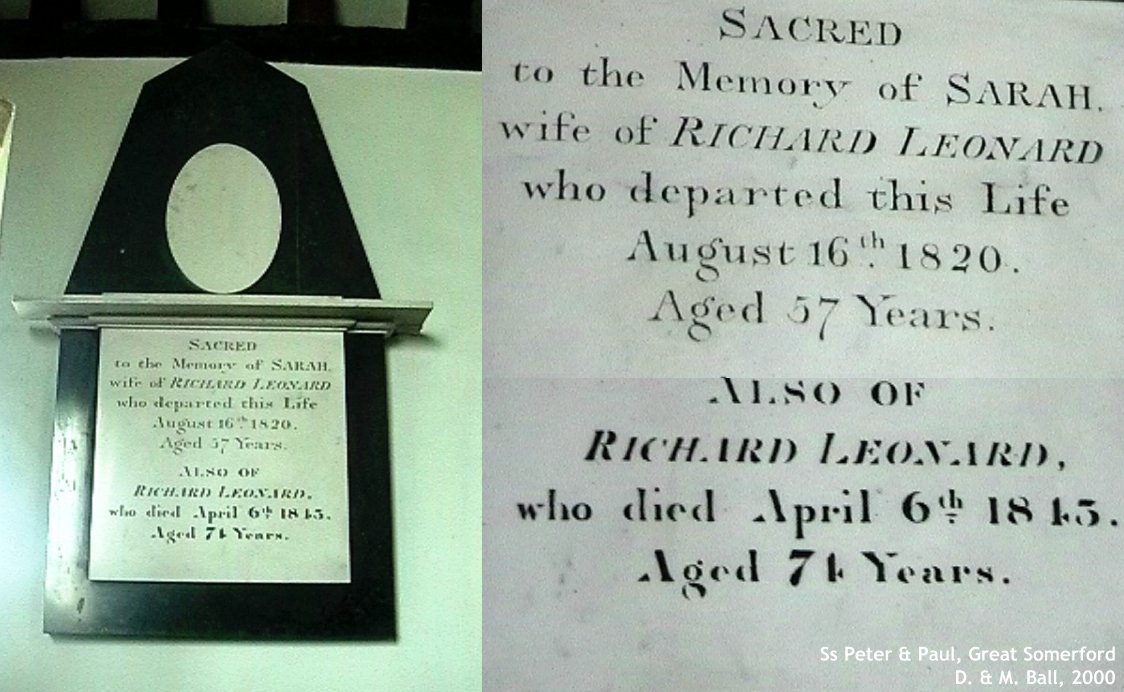 SACRED
to the Memory of SARAH.
wife of RICHARD LEONARD
who departed this Life
August 16th. 1820.
Aged 57 Years.
ALSO OF
RICHARD LEONARD,
who died April 6th 1845.
Aged 74 Years.
SACRED
to the Memory of SARAH.
wife of RICHARD LEONARD
who departed this Life
August 16th. 1820.
Aged 57 Years.
ALSO OF
RICHARD LEONARD,
who died April 6th 1845.
Aged 74 Years.
Ss Peter & Paul, Great Somerford
D. & M. Ball, 2000